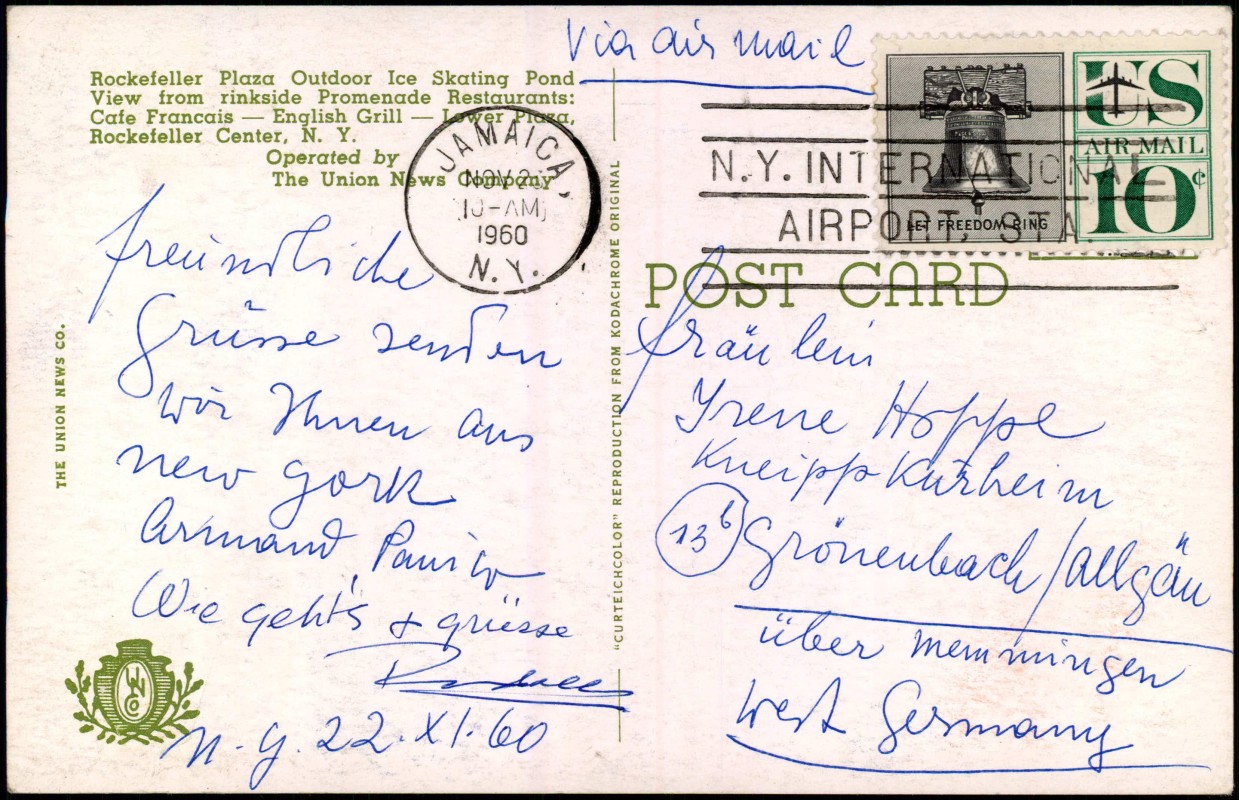 Via air mail
Rockefeller Plaza Outdoor Ice Skating Pond
View from rinkside Promenade Restaurants:
Cafe Francais — English Grill — Lower Plaza,
Rockefeller Center, N. Y.
Operated by
The Union News Company
JAMAICA,
NOV 2
10-AM
1960
N.Y.
N.Y. INTERNATIONAL
AIRPORT, STA.
LET FREEDOM RING
US
AIR MAIL
10¢
POST CARD
freundliche
Grüsse senden
wir Ihnen aus
New York
Armand,
Wie geht's + grüsse
N.Y. 22.XI.60
THE UNION NEWS CO.
UN
CO
"CURTEICHCOLOR" REPRODUCTION FROM KODACHROME ORIGINAL
Fräulein
Irene Hoppe
Kneippkurheim
13b Grönenbach/Allgäu
über Memmingen
West Germany